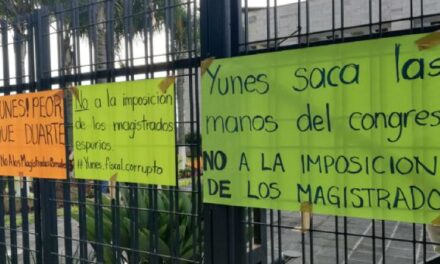 UNES! PEOR
QUE DUARTE
No a la imposición
de los magistrados
espurios.
#Yunes.fiscal.corrupto
Yunes saca las
manos del congres
NO A LA IMPOSICION
DE LOS MAGISTRADO